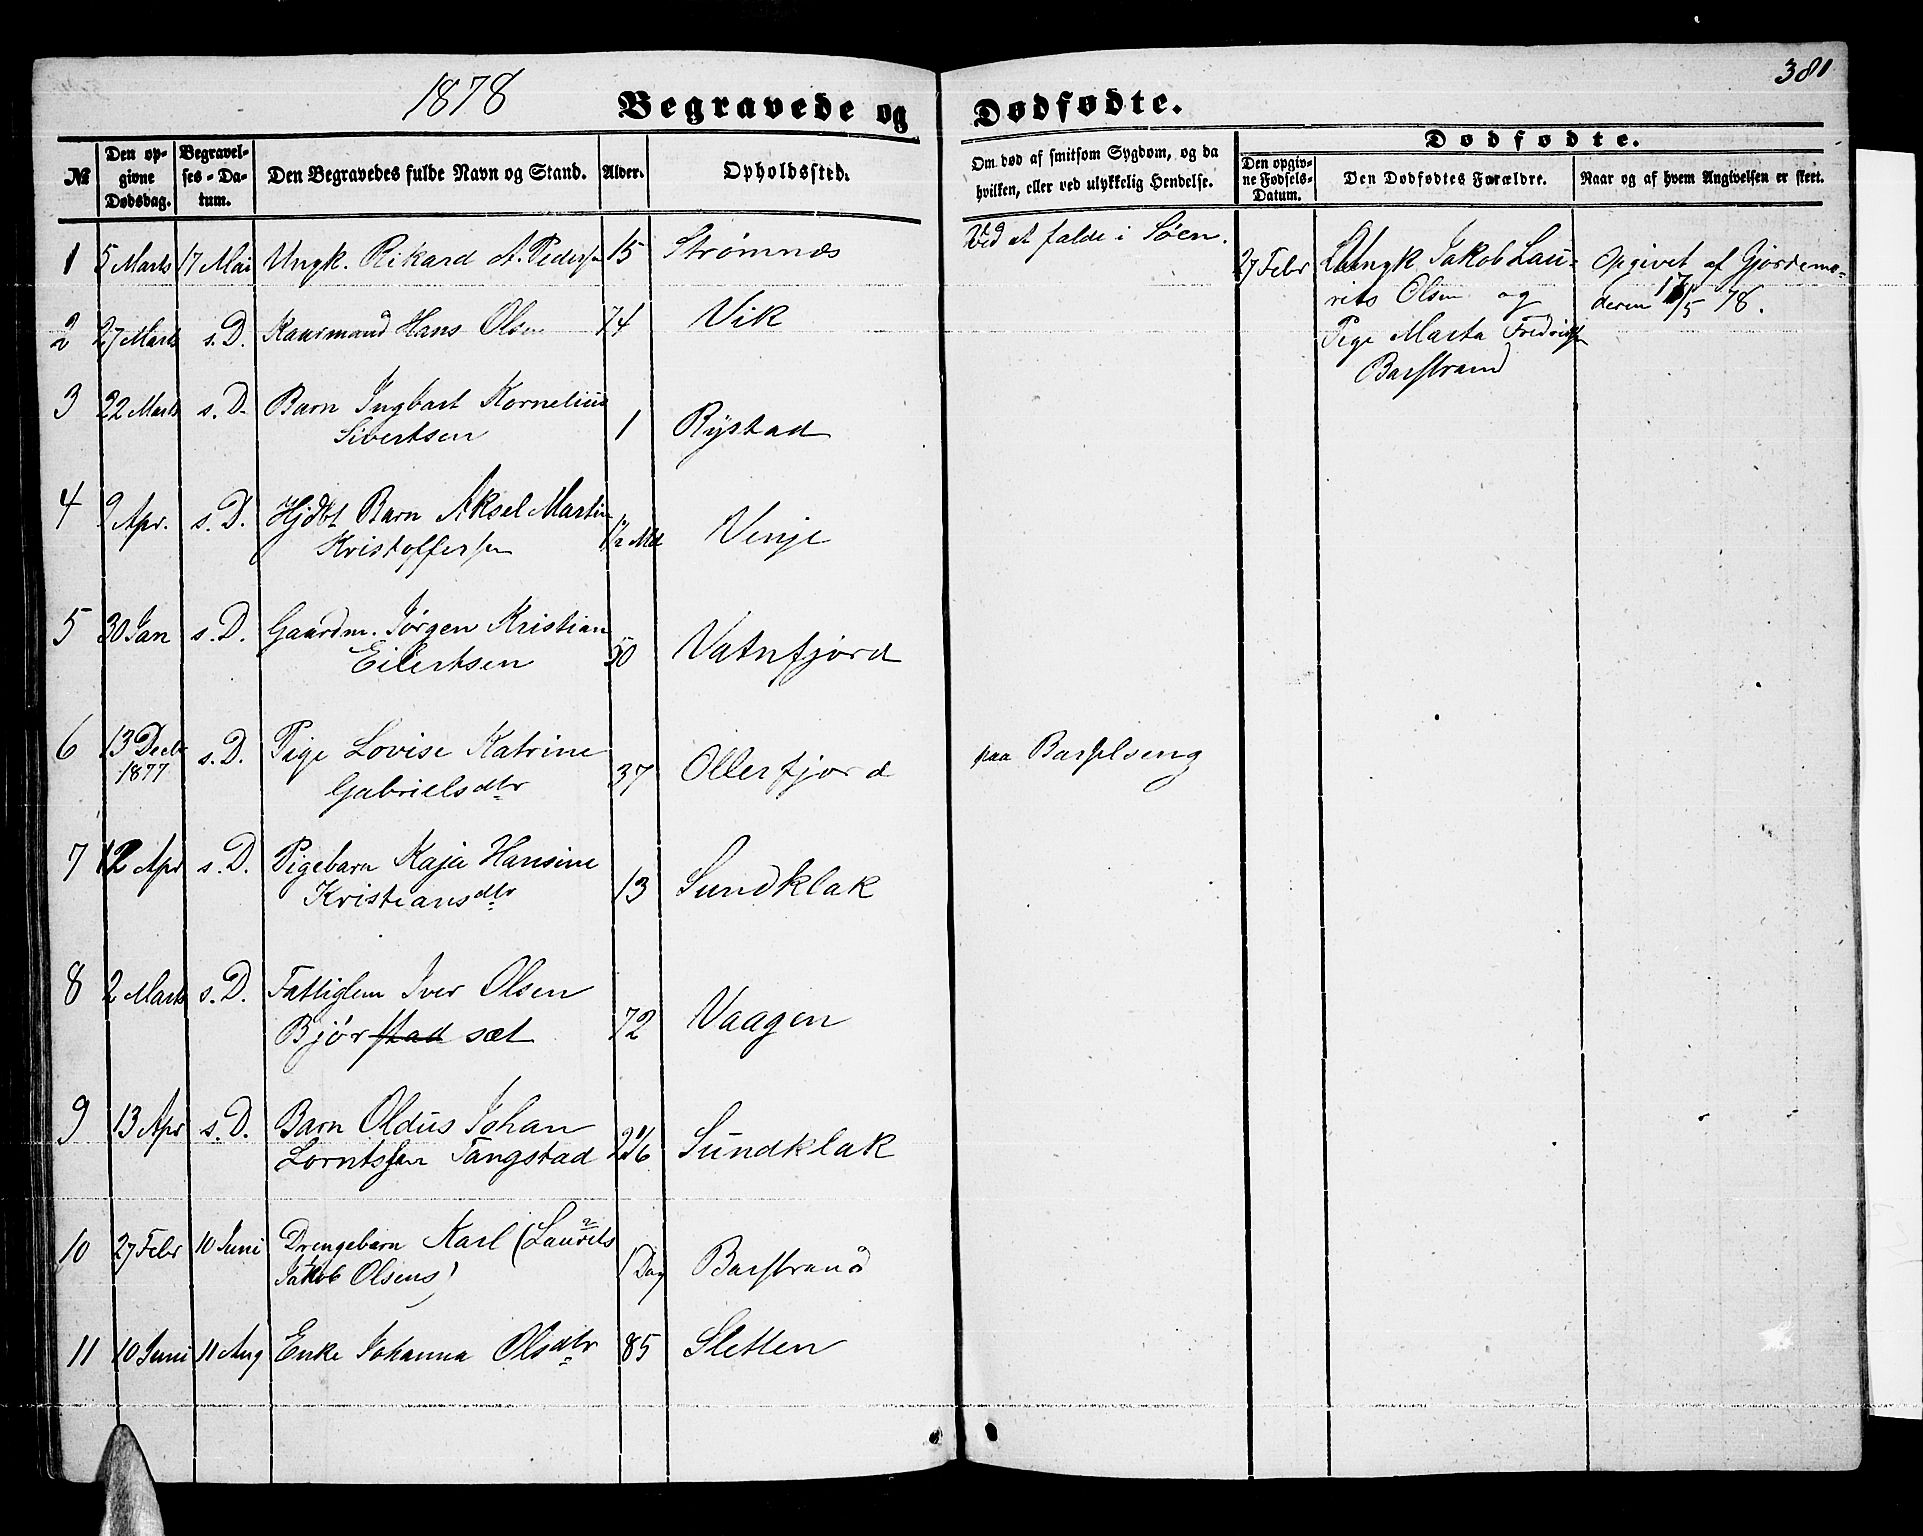 1878
Begravede og
Dødfødte.
381
№
Den opgivne Dødsdag.
Begravelses-Datum.
Den Begravedes fulde Navn og Stand.
Alder.
Opholdssted.
Om død af smitsom Sygdom, og da hvilken, eller ved ulykkelig Hendelse.
Dødfødte.
Den opgivne Fødsels-Datum.
Den Dødfødtes Forældre.
Naar og af hvem Angivelsen er skeet.
1 5 Marts 17 Mai Ungk. Rikard A. Pedersen 15 Strømnæs Ved at falde i Søen.
27 Febr Ungk Jakob Lau-
rits Olsen og
Pige Marta Fredriks
Barstrand
Opgivet af Gjordemo-
deren 17/5 78.
2 27 Marts s. D. Kaarmand Hans Olsen 74 Vik
3 22 Marts s. D. Barn Ingbart Kornelius
Sivertsen 1 Rystad
4 9 Apr. s. D. Hjdbt Barn Aksel Martin
Kristoffersen 1½ Md Venje
5 30 Jan s. D. Gaardm. Jørgen Kristian
Eilertsen 50 Vatnfjord
6 13 Decbr
1877 s. D. Pige Lovise Katrine
Gabrielsdtr 37 Ollerfjord paa Barselseng
7 12 Apr s. D. Pigebarn Kaja Hansine
Kristiansdtr 13 Sundklak
8 2 Marts s. D. Fattiglem Iver Olsen
Bjørstad sæt 72 Vaagen
9 13 Apr s. D. Barn Oldus Johan
Lorntsen Tangstad Sundklak
10 27 Febr 10 Juni Drengebarn Karl (Laurits
Jakob Olsens) 1 Dag Barstrand
11 10 Juni 11 Aug Enke Johanna Olsdtr 85 Sletten